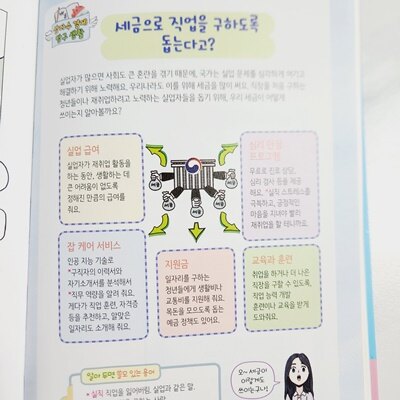 세금으로 직업을 구하도록
돕는다고?
실업자가 많으면 사회도 큰 혼란을 겪기 때문에, 국가는 실업 문제를 심각하게 여기고
해결하기 위해 노력해요. 우리나라도 이를 위해 세금을 많이 써요. 직장을 처음 구하는
청년들이나 재취업하려고 노력하는 실업자들을 돕기 위해, 우리 세금이 어떻게
쓰이는지 알아볼까요?
실업 급여
실업자가 재취업 활동을
하는 동안, 생활하는 데
큰 어려움이 없도록
정해진 만큼의 급여를
줘요.
심리 안정
프로그램
무료로 진로 상담,
심리 검사 등을 제공
해요. *실직 스트레스를
극복하고, 긍정적인
마음을 지녀야 빨리
재취업을 할 테니까요.
세금
세금
세금
세금
세금
잡 케어 서비스
인공 지능 기술로
*구직자의 이력서와
자기소개서를 분석해
*직무 역량을 알려 줘요.
게다가 직업 훈련, 자격증
등을 추천하고, 알맞은
일자리도 소개해 줘요.
지원금
일자리를 구하는
청년들에게 생활비나
교통비를 지원해 줘요.
목돈을 모으도록 돕는
예금 정책도 있어요.
교육과 훈련
취업을 하거나 더 나은
직장을 구할 수 있도록,
직업 능력 개발
훈련이나 교육을 받게
도와줘요.
알아 두면 쓸모 있는 용어
• 실직 직업을 잃어버림. 실업과 같은 말.
오~ 세금이
이렇게도
쓰이는구나!